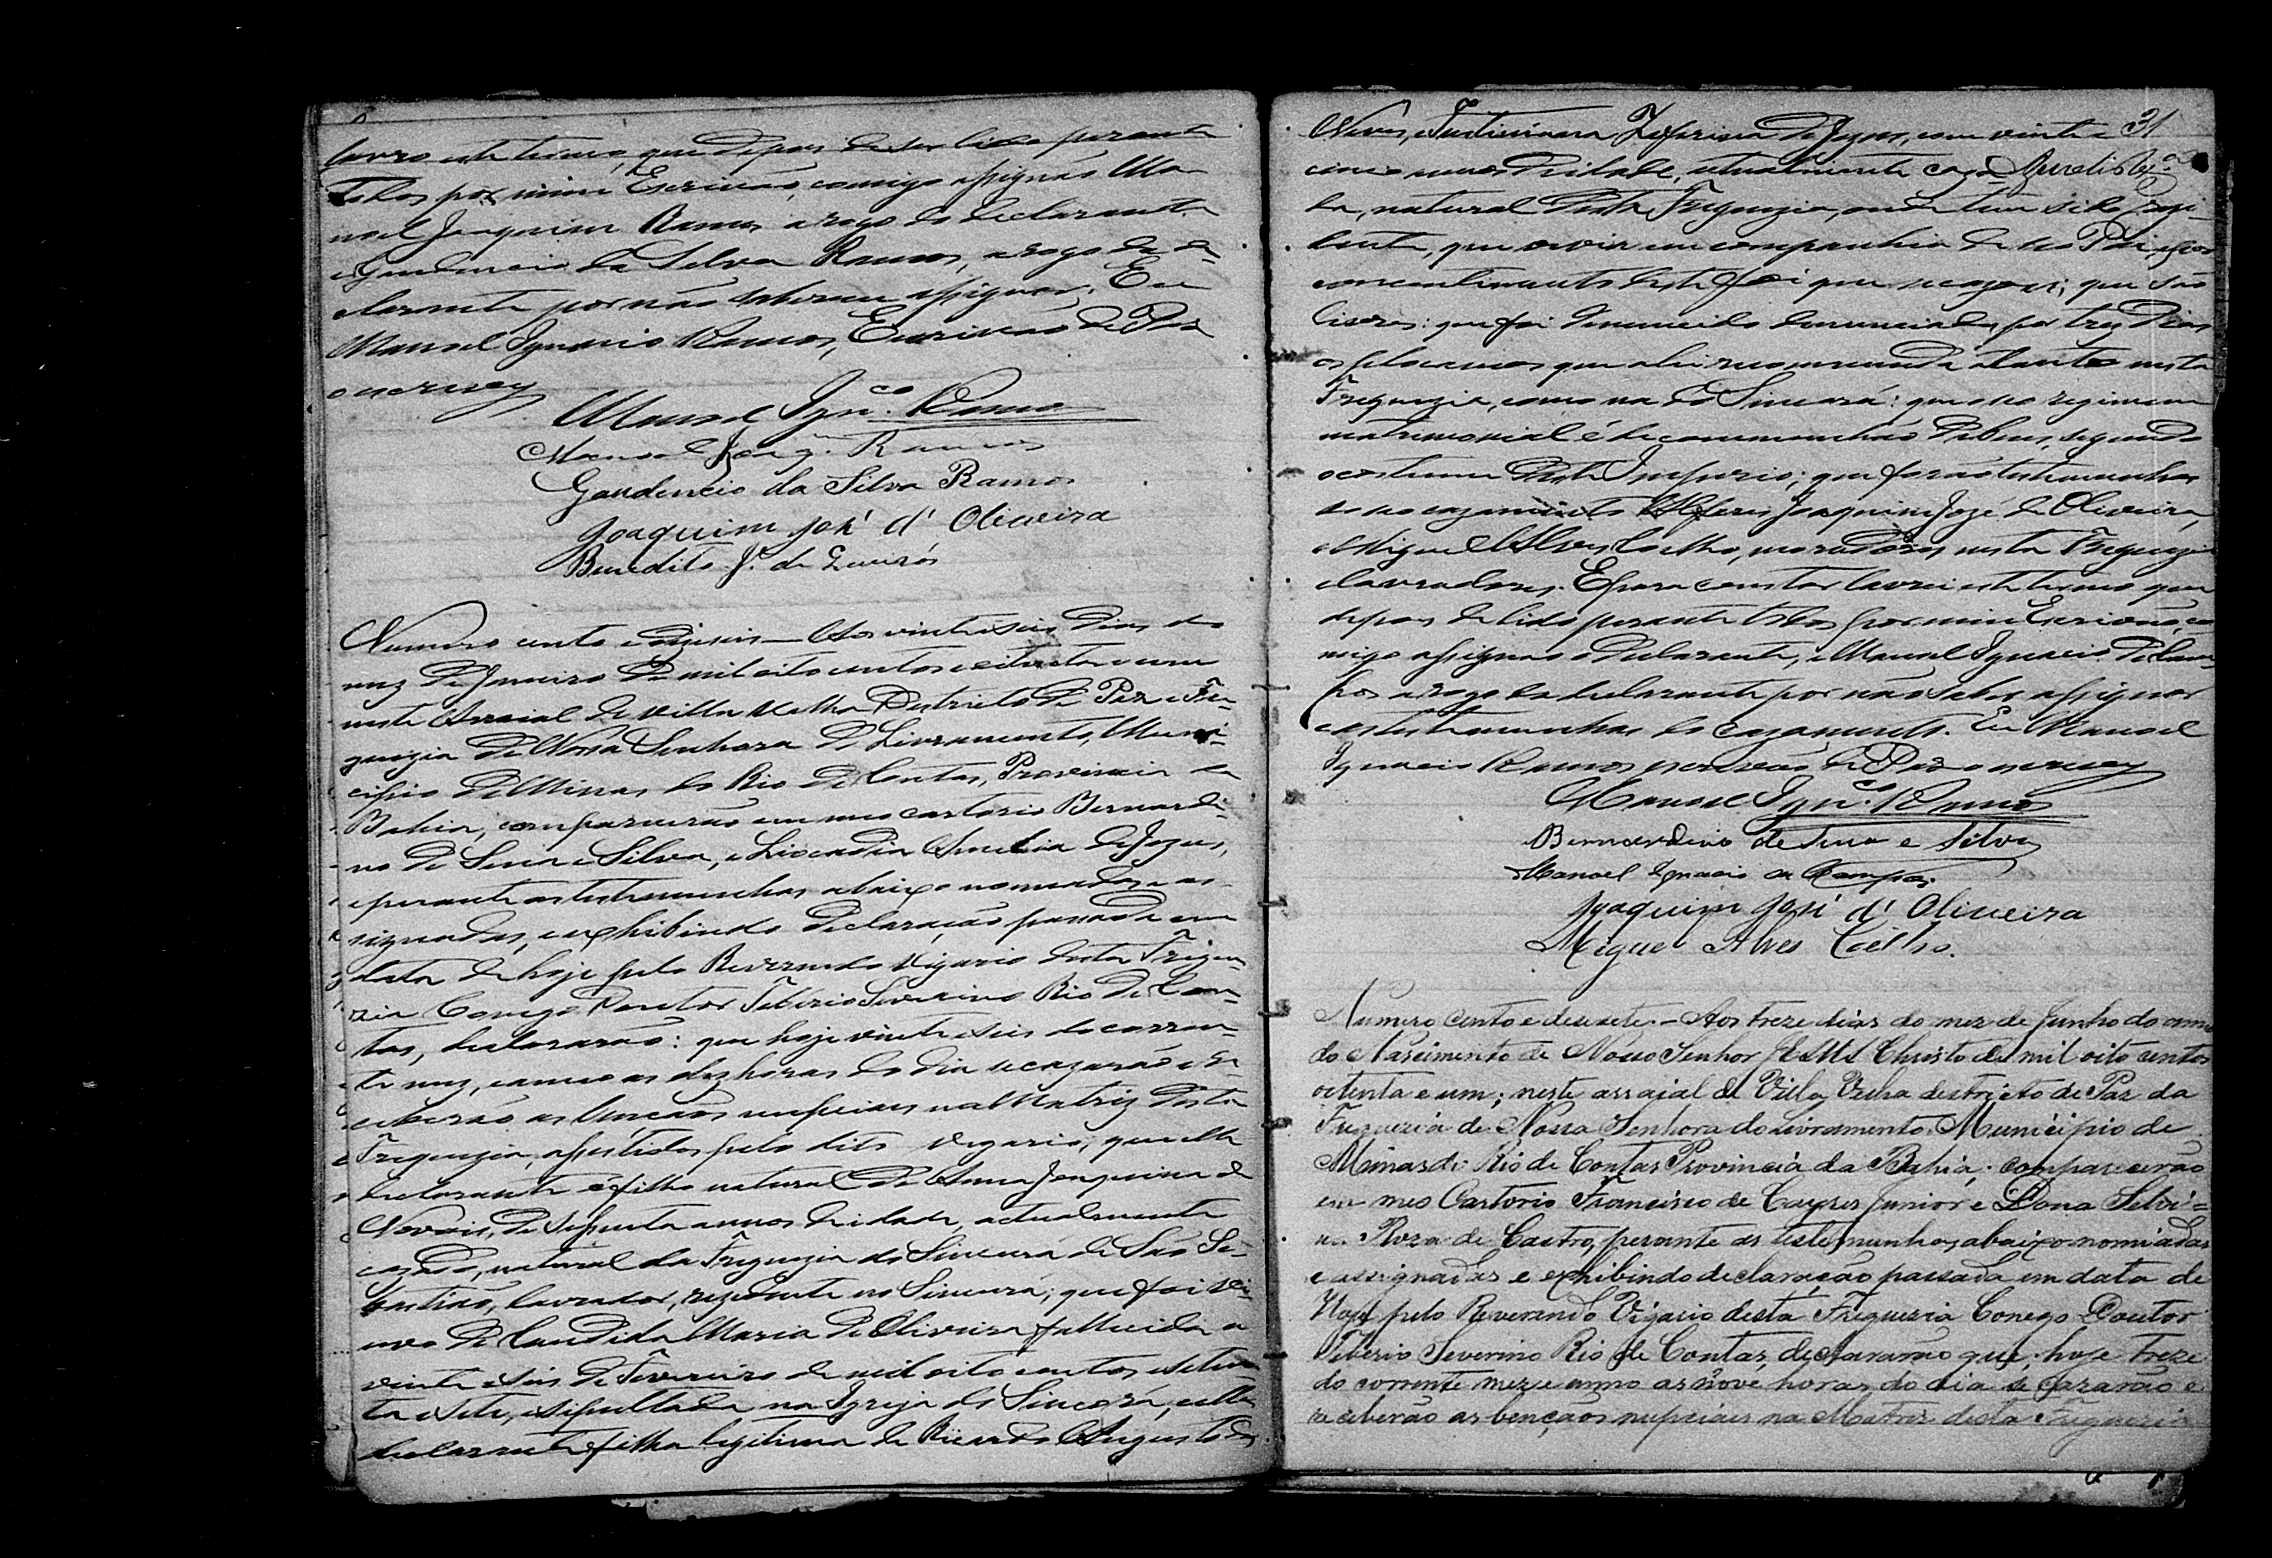 lavro este termo, que depois de ser lido perante
todos por mim Escrivão, comigo assignão Ma-
noel Joaquim Ramos a rogo do declarante
e Gaudencio da Silva Ramos, a rogo da de-
clarante por não saberem assignar. Eu
Manoel Ignacio Ramos, Escrivão de Paz
o escrevy
Manoel Ign.co Ramos
Manoel Joaq.m Ramos
Gaudencio da Silva Ramos
Joaquim José d' Oliveira
Benedito J. de Queirós
Numero cento e dezeseis — Aos vinte e seis dias do
mez de Janeiro de mil oito centos e oitenta e um
neste Arraial de Villa Velha Destricto de Paz e Fre-
guezia de Nossa Senhora do Livramento, Muni-
cipio de Minas do Rio de Contas, Provincia da
Bahia, comparecerão em meo cartorio Bernardi-
no de Sena e Silva, e Liocadia Amelia de Jezus,
e perante as testemunhas abaixo nomeadas e as-
signadas, e exhibindo declaração passada em
data de hoje pelo Reverendo Vigario desta Fregue-
zia Conego Doutor Tiberio Severino Rio de Con-
tas, declararão: que hoje vinte e seis do corren-
te mez, e anno as dez horas do dia se cazarão e re-
ceberão as bençãos nupciaes na Matriz desta
Freguezia, assistidos pelo dito Vigario; que elle
declarante é filho natural de Anna Joaquina de
Novais, de sessenta annos de idade, actualmente
cazado, natural da Freguezia do Sincurá de São Se-
bastião, lavrador, rezidente no Sincurá; que foi vi-
uvo de Candida Maria de Oliveira fallecida a
vinte e seis de Fevereiro de mil oito centos e seten-
ta e sete, e sepultada na Igreja do Sincorá, e ella
declarante filha legitima de Ricardo Augusto das
31
Neves, e Justiniana Zeferina de Jezus, com vinte e
cinco annos de idade, atualmente caza-
da, natural desta Freguezia, onde tem sido rezi-
dente, que vivia em companhia de seo Pai, e por
consentimento deste foi que se cazou; que são
Liscros: que foi denunciado por tres dias
os proclamas que a lei recommenda tanto nesta
Freguezia, como na do Sincorá: que o seo regimem
matrimonial é de communhão de bens, segundo
o costume deste Imperio; que forão testemunhas
do seo cazamento Alferes Joaquim José de Oliveira,
e Miguel Alves Coelho, moradores nesta Freguezia
e lavradores. E para constar lavrei este termo que
depois de lido perante todos por mim Escrivão, co-
migo assignão o declarante, e Manoel Ignacio de Cam-
pos a rogo da declarante por não saber assignar
e as testemunhas do cazamento. Eu Manoel
Ignacio Ramos escrivão de Paz o escrevy
Manoel Ign.co Ramos
Bernardino de Sena e Silva
Manoel Ignacio de Campos
Joaquim José d' Oliveira
Miguel Alves Coêlho.
Numero cento e desesete. — Aos treze dias do mez de Junho do anno
do Nascimento de Nosso Senhor JESUS Christo de mil oito centos
oitenta e um; neste arraial de Villa Velha destricto de Paz da
Freguezia de Nossa Senhora do Livramento Municipio de
Minas do Rio de Contas Provincia da Bahia; comparecerão
em meo Cartorio Francisco de Cayres Junior e Dona Selvi-
na Roza de Castro, perante as testemunhas abaixo nomiadas
e assignadas e exhibindo declaração passada em data de
Hoje pelo Reverendo Vigario desta Freguezia Conego Doutor
Tiberio Severino Rio de Contas, declararão que hoje treze
do corrente mez e anno as nove horas do dia se cazarão e
receberão as bençãos nupciaes na Matriz desta Freguezia